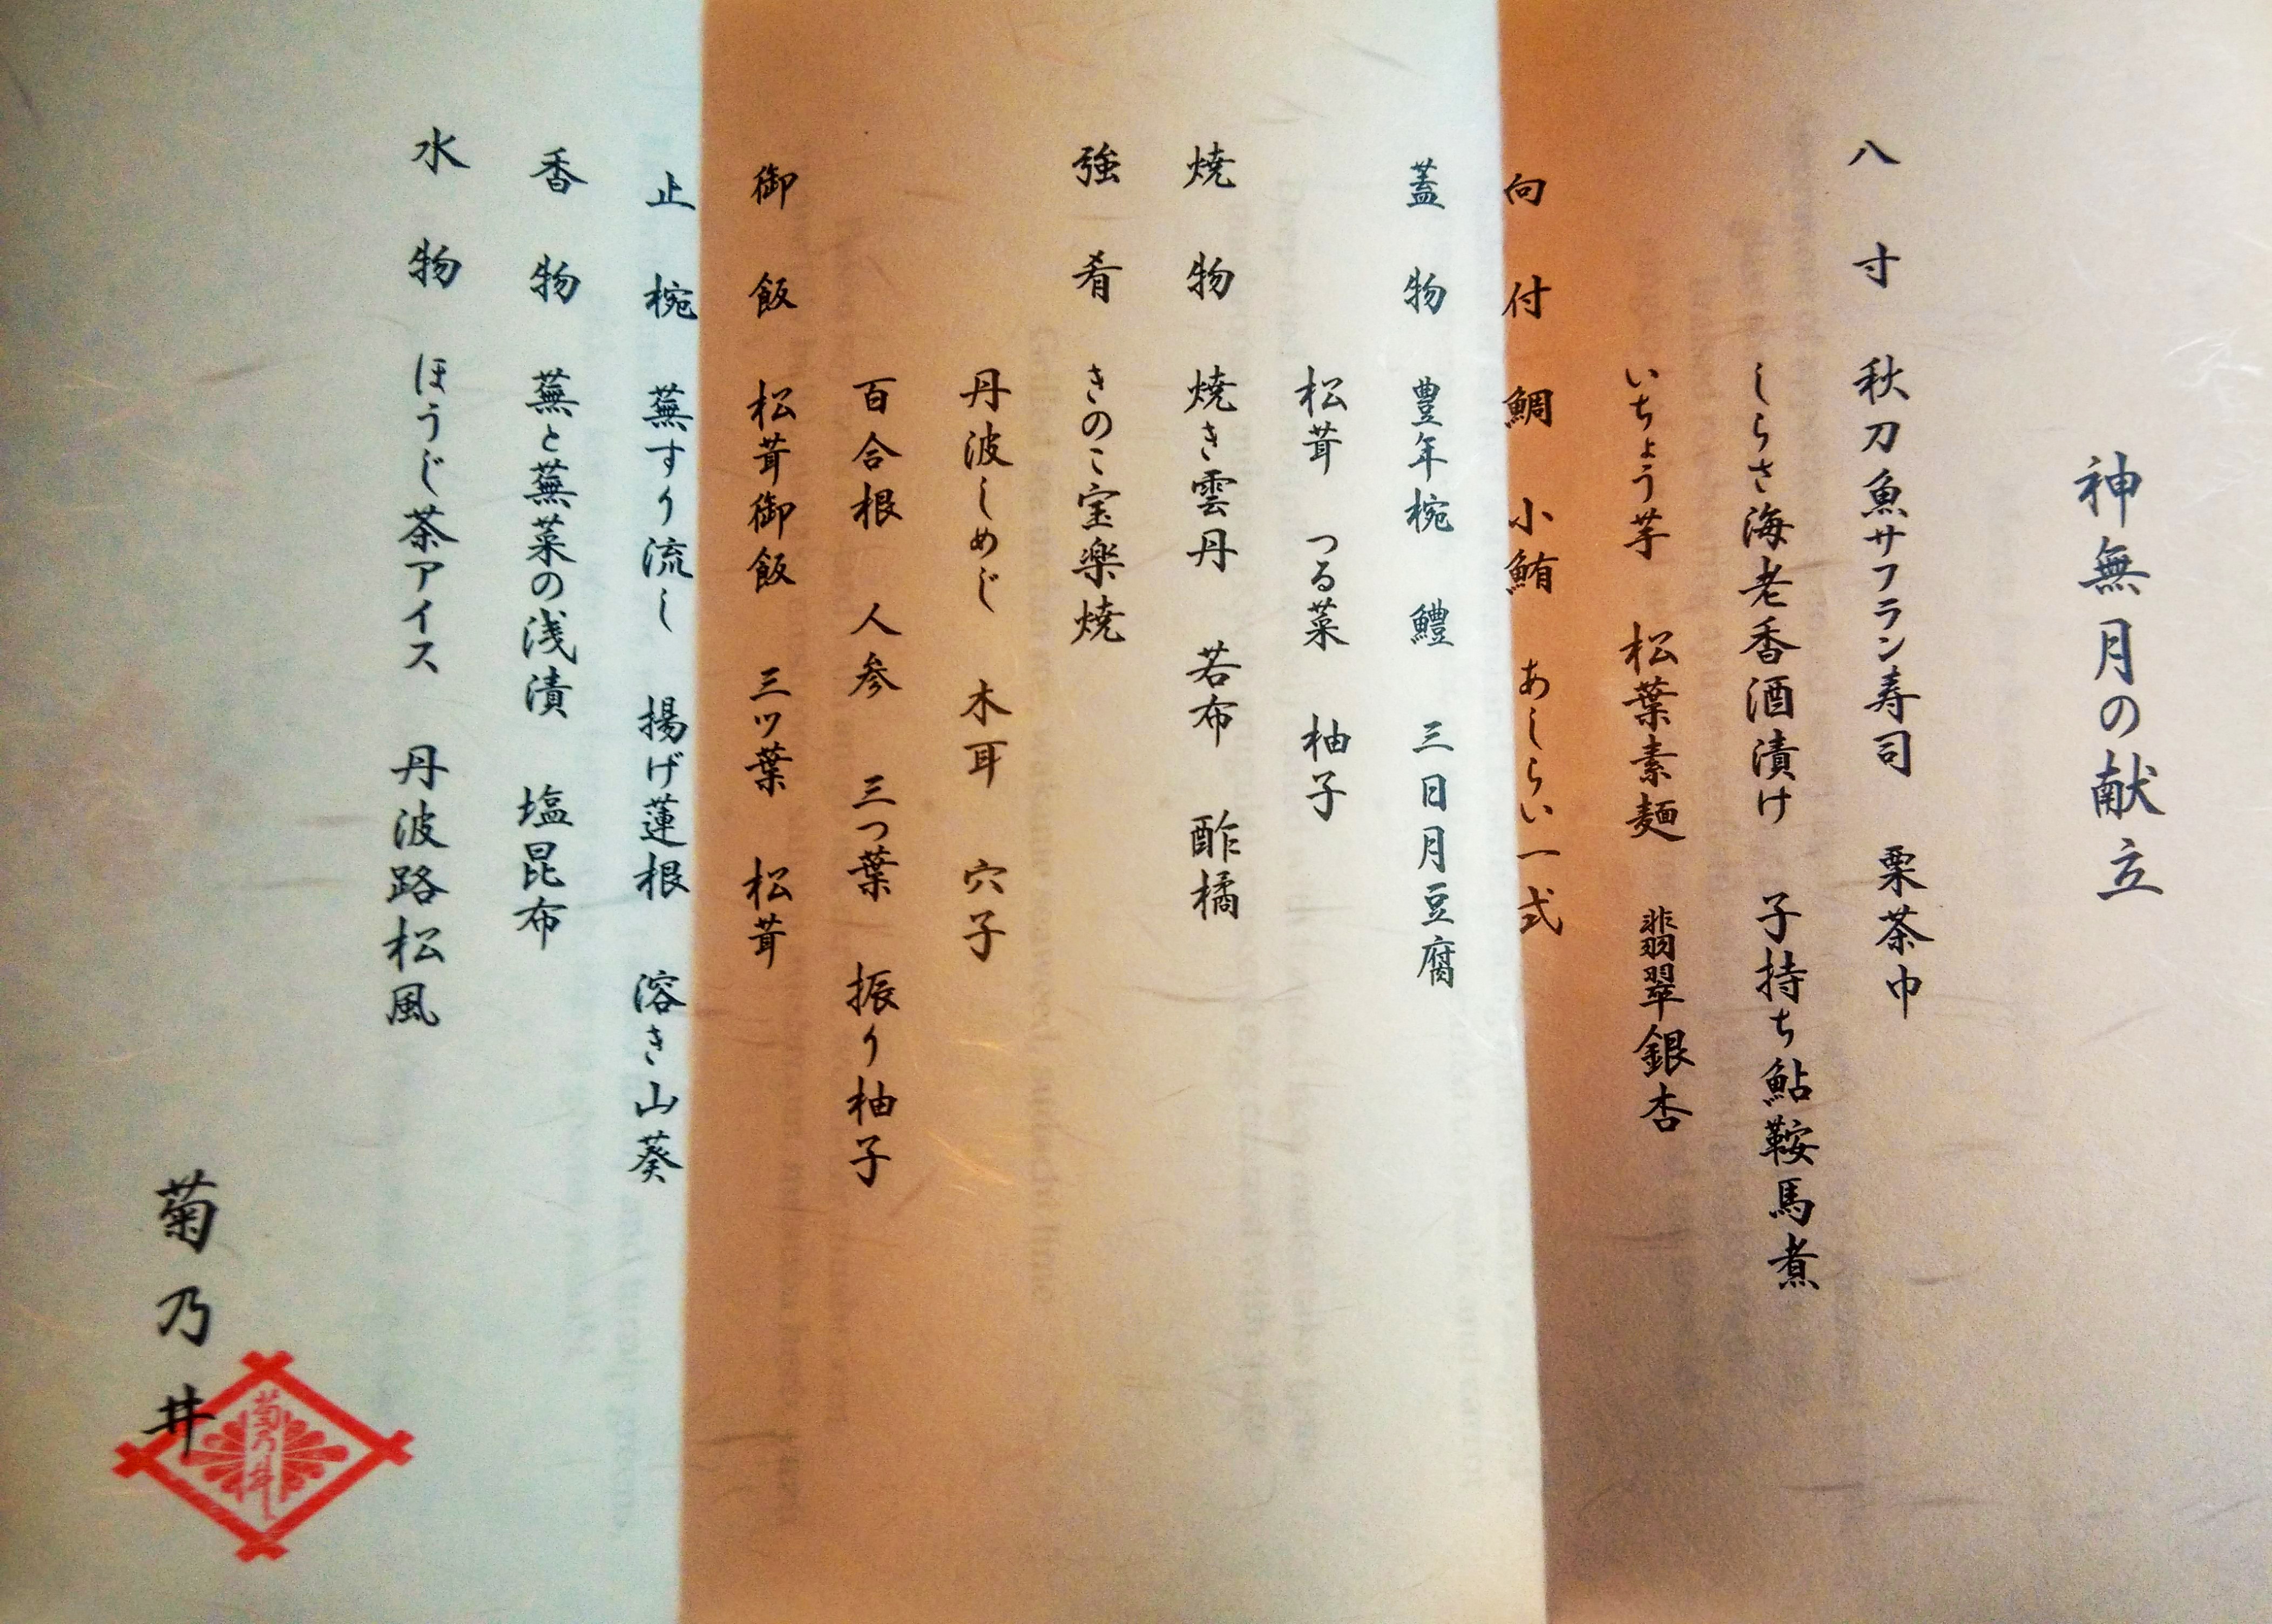 神無月の献立
八寸 秋刀魚サフラン寿司 栗茶巾
しらさ海老香酒漬け 子持ち鮎鞍馬煮
いちょう芋 松葉素麺 翡翠銀杏
向付 鯛 小鮪 あしらい一式
蓋物 豊年椀 鱧 三日月豆腐
松茸 つる菜 柚子
焼物 焼き雲丹 若布 酢橘
強肴 きのこ宝楽焼
丹波しめじ 木耳 穴子
百合根 人参 三つ葉 振り柚子
御飯 松茸御飯 三ッ葉 松茸
止椀 蕪すり流し 揚げ蓮根 溶き山葵
香物 蕪と蕪菜の浅漬 塩昆布
水物 ほうじ茶アイス 丹波路松風
菊乃井
菊乃井